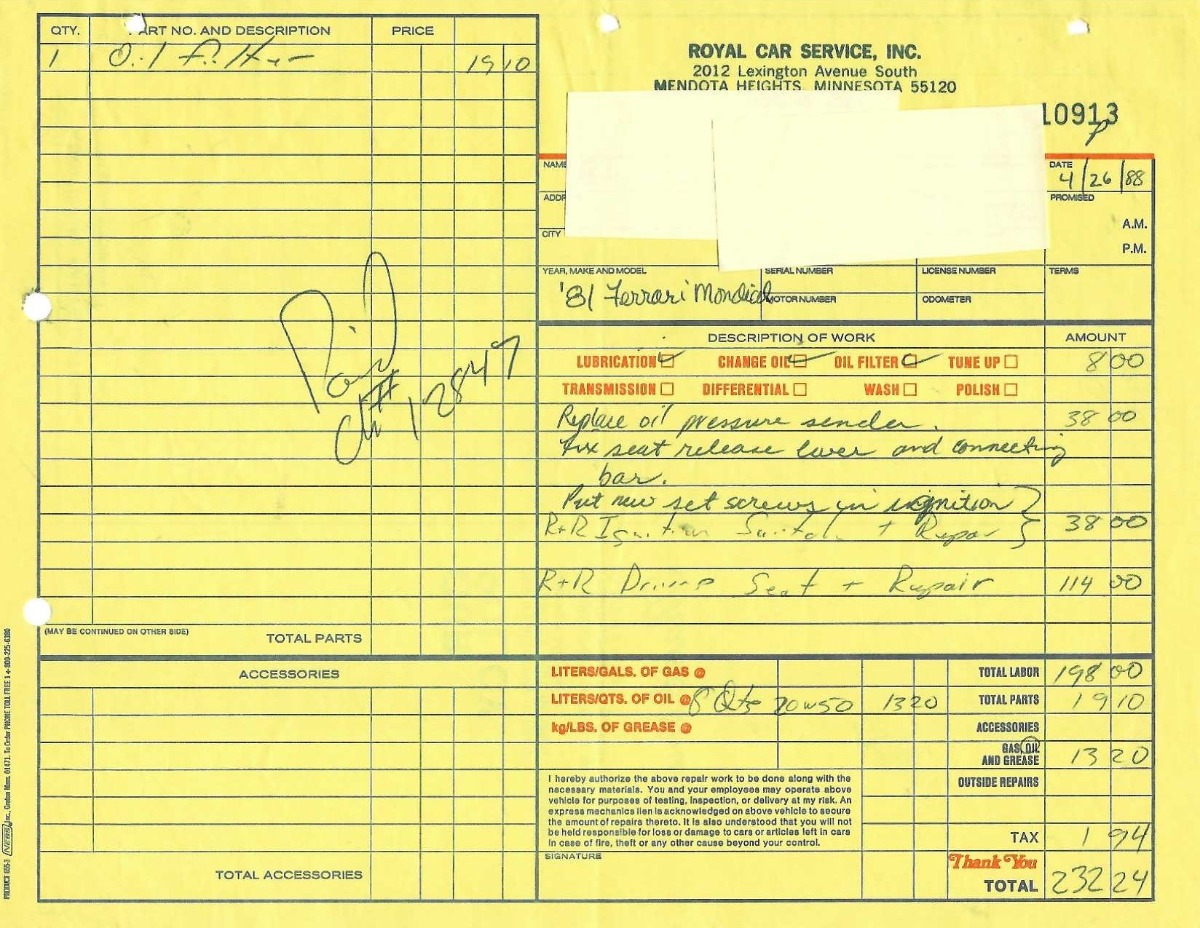 QTY. PART NO. AND DESCRIPTION PRICE
1 Oil filter 19 10
Paid
ck# 12847
(MAY BE CONTINUED ON OTHER SIDE) TOTAL PARTS
ACCESSORIES
TOTAL ACCESSORIES
PRODUCT 655-3 NEBS Inc., Groton Mass. 01471. To Order PHONE TOLL FREE 1 + 800-225-6380
ROYAL CAR SERVICE, INC.
2012 Lexington Avenue South
MENDOTA HEIGHTS, MINNESOTA 55120
10913
P
NAME
DATE
4/26/88
ADDR
PROMISED
A.M.
CITY
P.M.
YEAR, MAKE AND MODEL SERIAL NUMBER LICENSE NUMBER TERMS
'81 Ferrari Mondial MOTOR NUMBER ODOMETER
DESCRIPTION OF WORK AMOUNT
LUBRICATION CHANGE OIL OIL FILTER TUNE UP 8 00
TRANSMISSION DIFFERENTIAL WASH POLISH
Replace oil pressure sender. 38 00
Fix seat release lever and connecting
bar.
Put new set screws in ignition
R+R Ignition Switch + Repair 38 00
R+R Drivers Seat + Repair 114 00
LITERS/GALS. OF GAS @ TOTAL LABOR 198 00
LITERS/QTS. OF OIL @ 8 Qts 20w50 13 20 TOTAL PARTS 19 10
kg/LBS. OF GREASE @ ACCESSORIES
GAS, OIL
AND GREASE 13 20
I hereby authorize the above repair work to be done along with the
necessary materials. You and your employees may operate above
vehicle for purposes of testing, inspection, or delivery at my risk. An
express mechanics lien is acknowledged on above vehicle to secure
the amount of repairs thereto. It is also understood that you will not
be held responsible for loss or damage to cars or articles left in care
in case of fire, theft or any other cause beyond your control.
SIGNATURE
OUTSIDE REPAIRS
TAX 1 94
Thank You
TOTAL 232 24